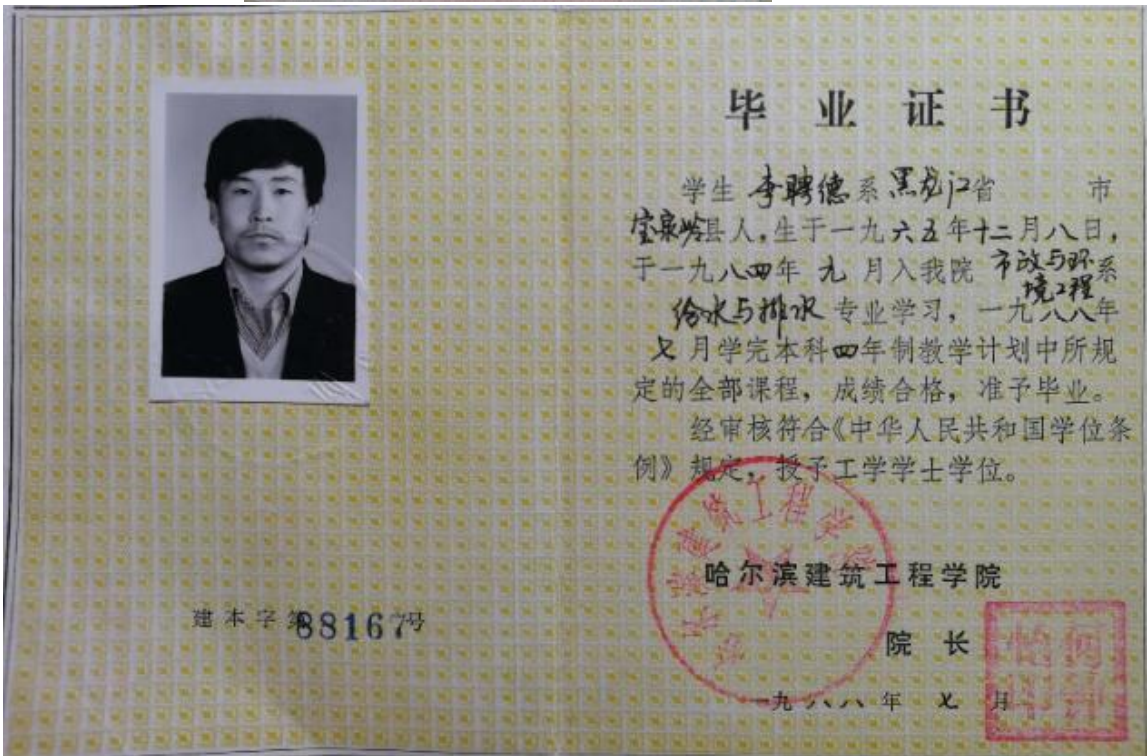 毕业证书
学生 李聘德 系 黑龙江省 市
宝泉岭县人,生于一九六五年十二月八日,
于一九八四年 九 月入我院 市政与环境工程系
给水与排水 专业学习,一九八八年
七月学完本科四年制教学计划中所规
定的全部课程,成绩合格,准予毕业。
经审核符合《中华人民共和国学位条
例》规定,授予工学学士学位。
哈尔滨建筑工程学院
院 长
一九八八年 七 月
建本字第88167号